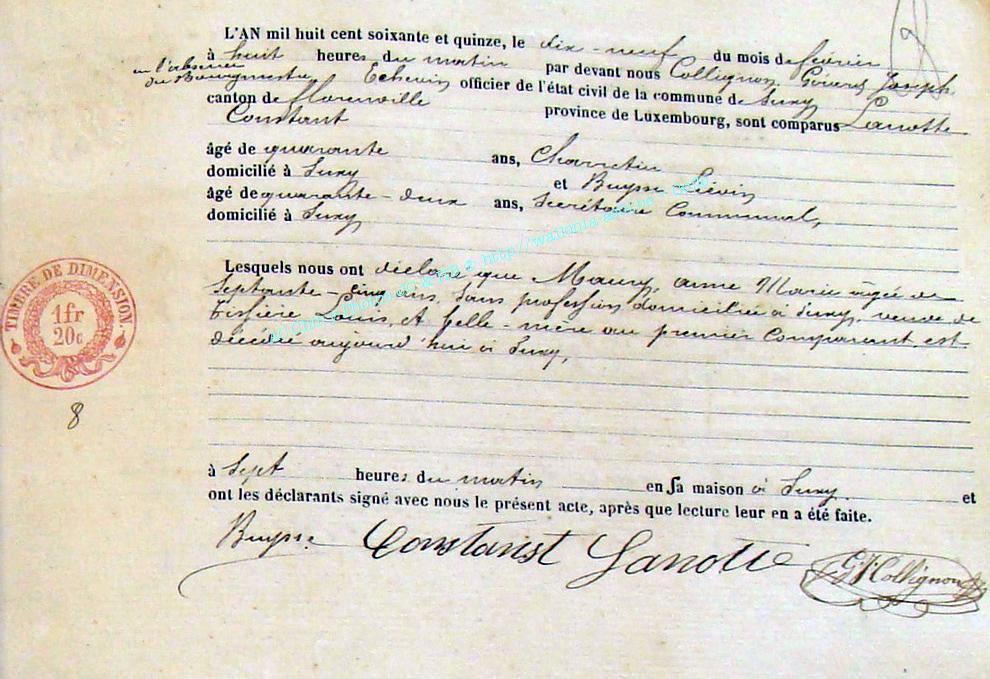 L'AN mil huit cent soixante et quinze, le dix-neuf du mois de février
à huit heures du matin par devant nous Collignon, Gérard Joseph
en l'absence du Bourgmestre Echevin officier de l'état civil de la commune de Suxy
canton de florenville province de Luxembourg, sont comparus Lanotte
Constant
âgé de quarante ans, Charretier
domicilié à Suxy et Buysse Liévin
âgé de quarante-deux ans, Secrétaire Communal,
domicilié à Suxy
Lesquels nous ont déclaré que Maury, anne Marie agée de
Septante-cinq ans, Sans profession domiciliée à Suxy, veuve de
Tissière Louis, et belle-mère au premier Comparant, est
décédée aujourd'hui à Suxy,
à Sept heures du matin en sa maison à Suxy. et
ont les déclarants signé avec nous le présent acte, après que lecture leur en a été faite.
Buysse Constant Lanotte G. J. Collignon
TIMBRE DE DIMENSION.
1fr
20c
8
http://wallonia-